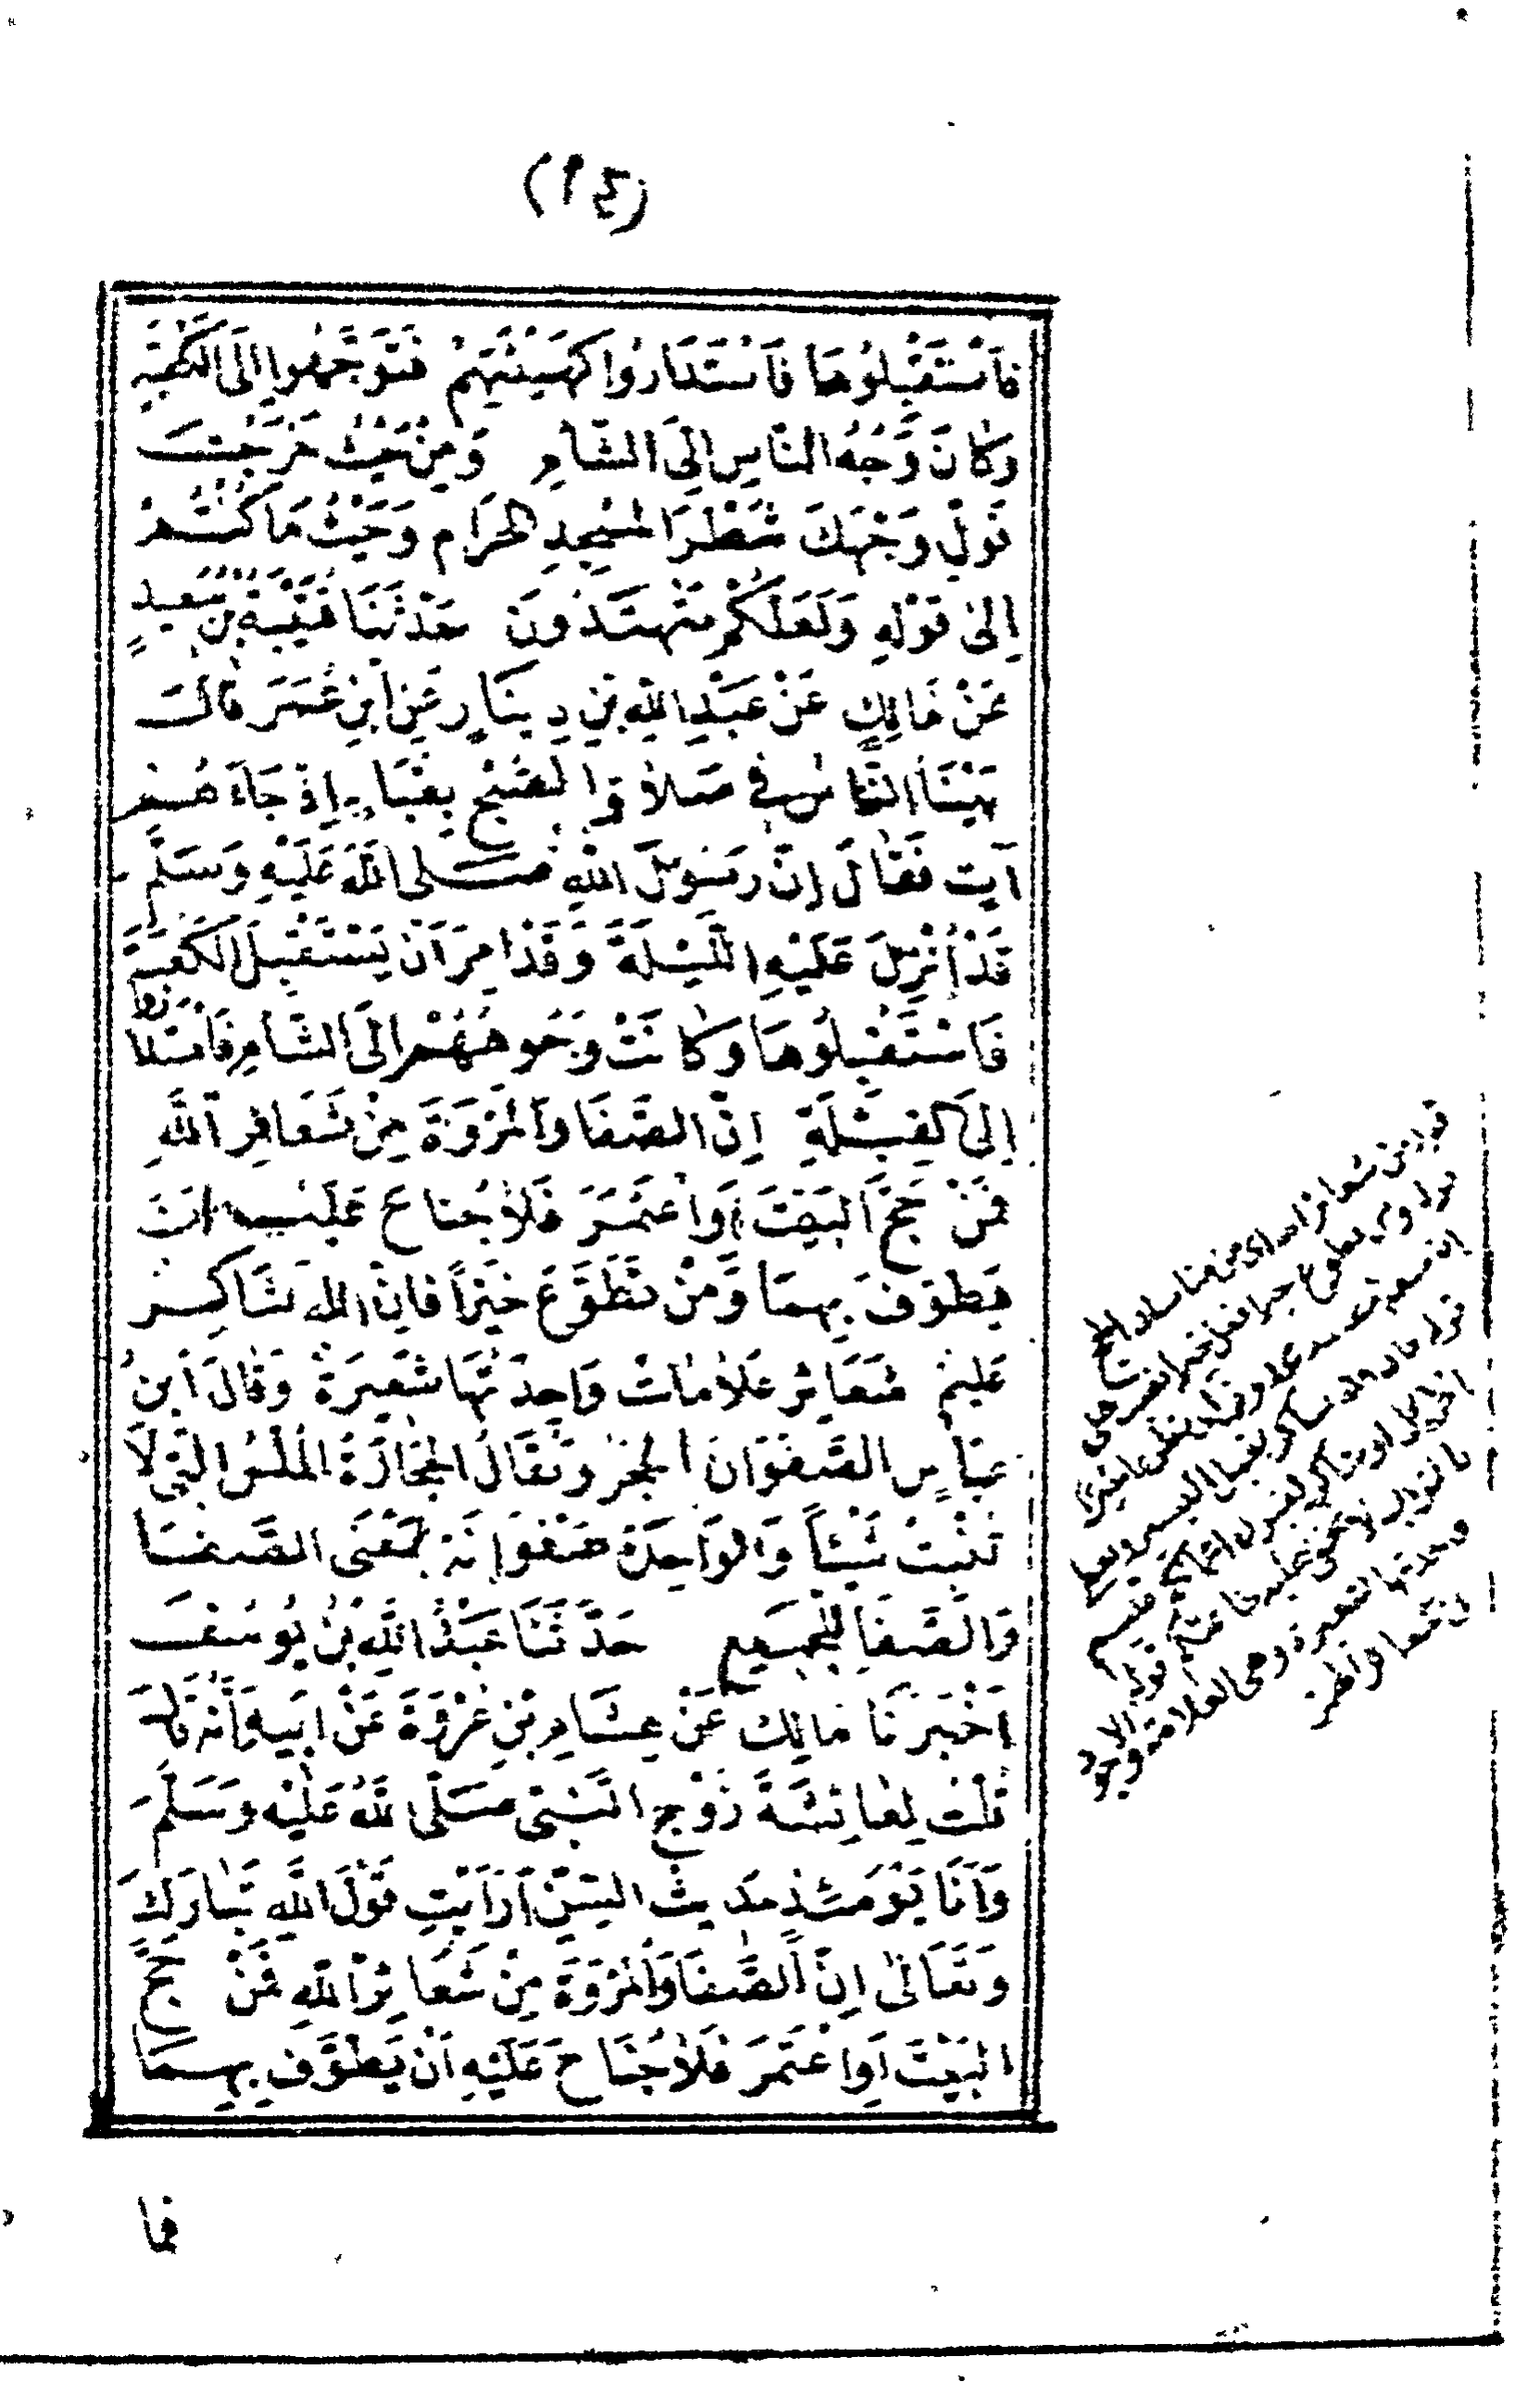 (١٤)
فَاسْتَقْبِلُوهَا فَاسْتَدَارُوا كَهَيْئَتِهِمْ فَتَوَجَّهُوا إِلَى الْكَعْبَةِ
وَكَانَ وَجْهُ النَّاسِ إِلَى الشَّامِ وَمِنْ حَيْثُ خَرَجْتَ
فَوَلِّ وَجْهَكَ شَطْرَ الْمَسْجِدِ الْحَرَامِ وَحَيْثُ مَا كُنْتُمْ
إِلَى قَوْلِهِ وَلَعَلَّكُمْ تَهْتَدُونَ حَدَّثَنَا قُتَيْبَةُ بْنُ سَعِيدٍ
عَنْ مَالِكٍ عَنْ عَبْدِ اللهِ بْنِ دِينَارٍ عَنِ ابْنِ عُمَرَ قَالَ
بَيْنَا النَّاسُ فِي صَلَاةِ الصُّبْحِ بِقُبَاءٍ إِذْ جَاءَهُمْ
آتٍ فَقَالَ إِنَّ رَسُولَ اللهِ صَلَّى اللهُ عَلَيْهِ وَسَلَّمَ
قَدْ أُنْزِلَ عَلَيْهِ اللَّيْلَةَ وَقَدْ أُمِرَ أَنْ يَسْتَقْبِلَ الْكَعْبَةَ
فَاسْتَقْبِلُوهَا وَكَانَتْ وُجُوهُهُمْ إِلَى الشَّامِ فَاسْتَدَارُوا
إِلَى الْقِبْلَةِ إِنَّ الصَّفَا وَالْمَرْوَةَ مِنْ شَعَائِرِ اللهِ
فَمَنْ حَجَّ الْبَيْتَ أَوِ اعْتَمَرَ فَلَا جُنَاحَ عَلَيْهِ أَنْ
يَطَّوَّفَ بِهِمَا وَمَنْ تَطَوَّعَ خَيْرًا فَإِنَّ اللهَ شَاكِرٌ
عَلِيمٌ شَعَائِرُ عَلَامَاتٌ وَاحِدَتُهَا شَعِيرَةٌ وَقَالَ ابْنُ
عَبَّاسٍ الصَّفْوَانُ الْحَجَرُ وَيُقَالُ الْحِجَارَةُ الْمُلْسُ الَّتِي لَا
تُنْبِتُ شَيْئًا وَالْوَاحِدَةُ صَفْوَانَةٌ بِمَعْنَى الصَّفَا
وَالصَّفَا لِلْجَمِيعِ حَدَّثَنَا عَبْدُ اللهِ بْنُ يُوسُفَ
أَخْبَرَنَا مَالِكٌ عَنْ هِشَامِ بْنِ عُرْوَةَ عَنْ أَبِيهِ أَنَّهُ قَالَ
قُلْتُ لِعَائِشَةَ زَوْجِ النَّبِيِّ صَلَّى اللهُ عَلَيْهِ وَسَلَّمَ
وَأَنَا يَوْمَئِذٍ حَدِيثُ السِّنِّ أَرَأَيْتِ قَوْلَ اللهِ تَبَارَكَ
وَتَعَالَى إِنَّ الصَّفَا وَالْمَرْوَةَ مِنْ شَعَائِرِ اللهِ فَمَنْ حَجَّ
الْبَيْتَ أَوِ اعْتَمَرَ فَلَا جُنَاحَ عَلَيْهِ أَنْ يَطَّوَّفَ بِهِمَا
فما